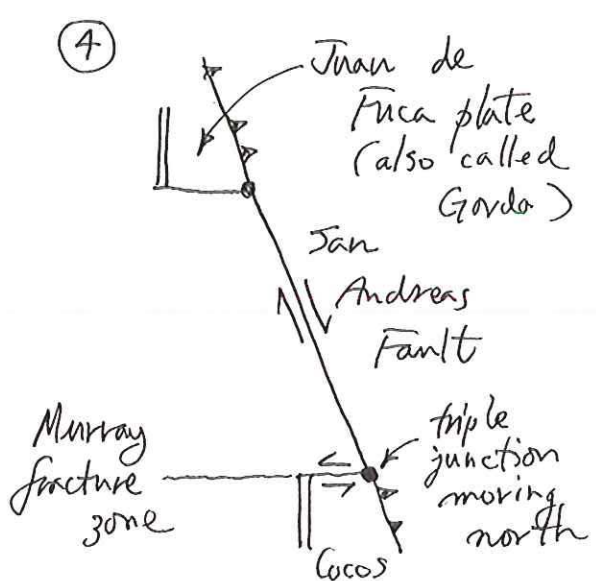 4
Juan de
Fuca plate
(also called
Gorda)
San
Andreas
Fault
Murray
fracture
zone
triple
junction
moving
north
Cocos